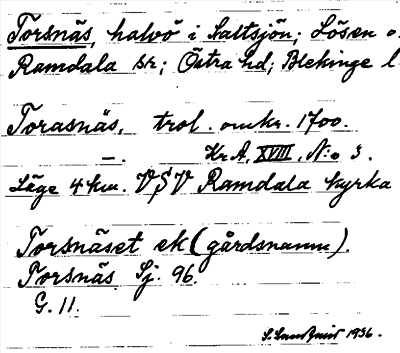 Torsnäs, halvö i Saltsjön; Lösen o.
Ramdala sr; Östra hd; Blekinge l.
Torasnäs, trol. omkr. 1700.
—. Kr A, XVIII, N:o 3.
Läge 4 km. VSV Ramdala kyrka
Torsnäset ek (gårdsnamn).
Torsnäs Sj. 96.
G. 11.
1936.